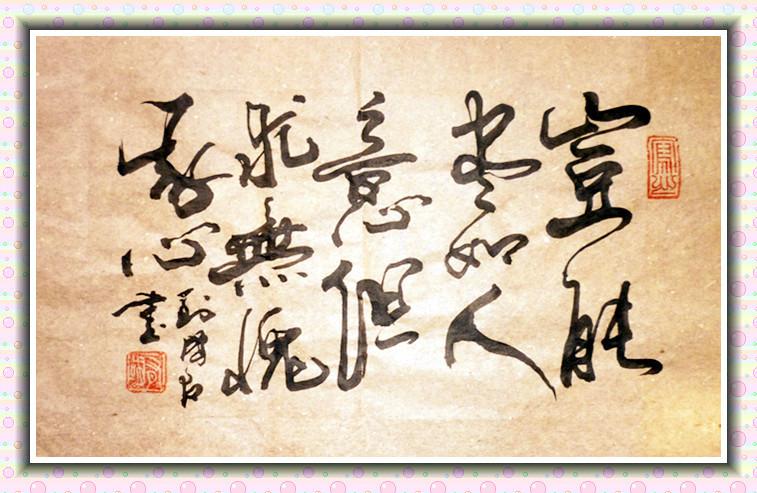 豈能
盡如人
意但
求無愧
我心
書